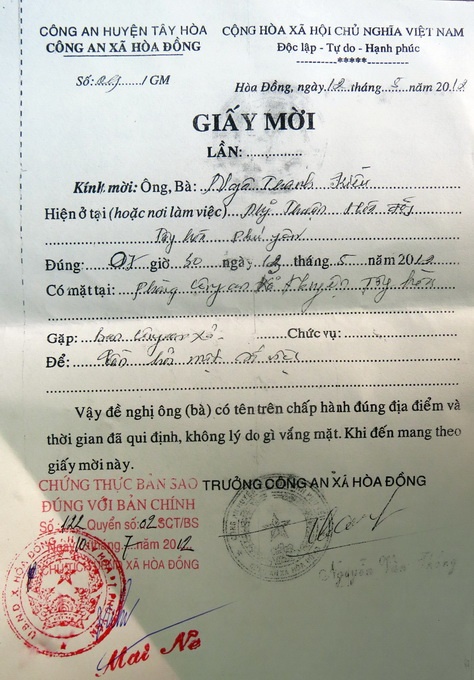 CÔNG AN HUYỆN TÂY HÒA
CÔNG AN XÃ HÒA ĐỒNG
CỘNG HÒA XÃ HỘI CHỦ NGHĨA VIỆT NAM
Độc lập - Tự do - Hạnh phúc
-----------*****-----------
Số: /GM
Hòa Đồng, ngày 12 tháng 5 năm 2012
GIẤY MỜI
LẦN:
Kính mời: Ông, Bà: Ngô Thanh
Hiện ở tại (hoặc nơi làm việc)
Tây hòa phú yên
Đúng: 07 giờ 30 ngày 12 tháng 5 năm 2012
Có mặt tại: phòng công an Tây hòa
Gặp: ban công an xã Chức vụ:
Để: một số việc
Vậy đề nghị ông (bà) có tên trên chấp hành đúng địa điểm và
thời gian đã qui định, không lý do gì vắng mặt. Khi đến mang theo
giấy mời này.
CHỨNG THỰC BẢN SAO
ĐÚNG VỚI BẢN CHÍNH
Số 122 Quyển số: 02 SCT/BS
Ngày 10 tháng 7 năm 2012
XÃ HÒA ĐỒNG
TRƯỞNG CÔNG AN XÃ HÒA ĐỒNG
Nguyễn Văn
Mai Nô